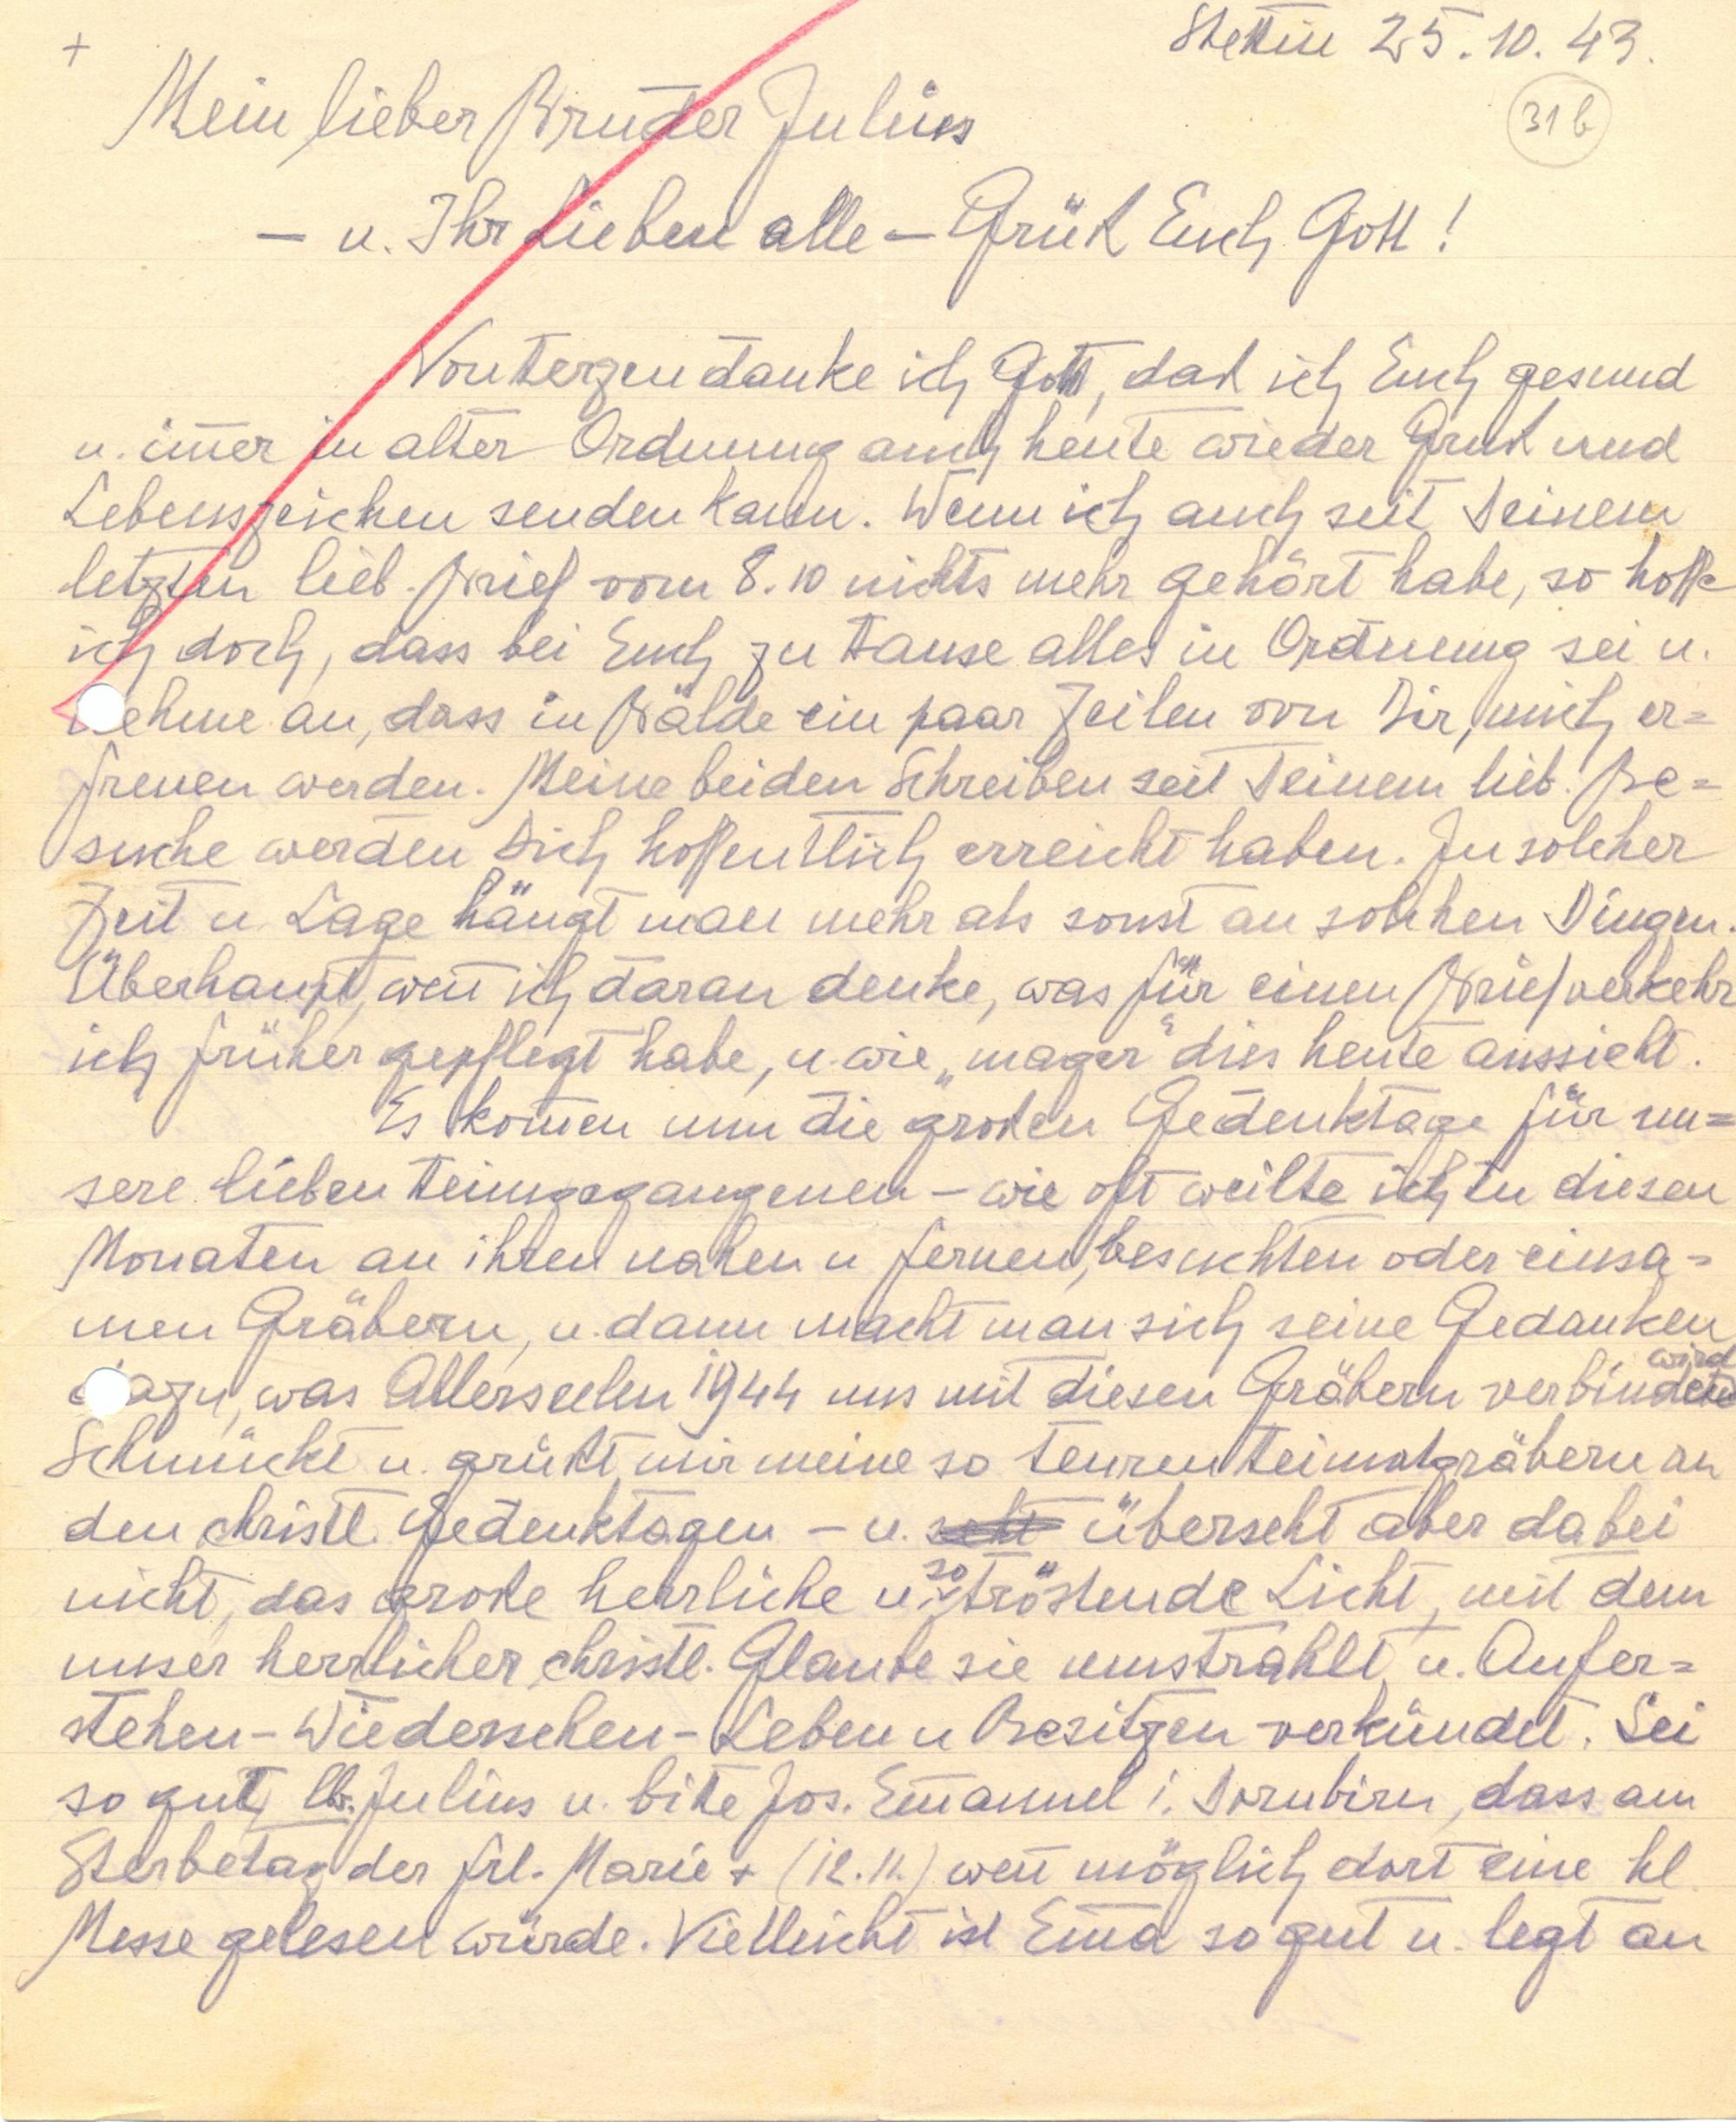 +
Stettin 25.10.43.
31 b
Mein lieber Bruder Julius
– u. Ihr Lieben alle – Grüß Euch Gott!
Von Herzen danke ich Gott, daß ich Euch gesund
u. im̄er in alter Ordnung auch heute wieder Gruß und
Lebenszeichen senden kann. Wenn ich auch seit Deinem
letzten lieb. Brief vom 8.10 nichts mehr gehört habe, so hoffe
ich doch, dass bei Euch zu Hause alles in Ordnung sei u.
nehme an, dass in Bälde ein paar Zeilen von Dir, mich er=
freuen werden. Meine beiden Schreiben seit Deinem lieb. Be=
suche werden Dich hoffentlich erreicht haben. In solcher
Zeit u Lage hängt man mehr als sonst an solchen Dingen.
Überhaupt, wen̄ ich daran denke, was für einen Briefverkehr
ich früher gepflegt habe, u. wie „mager“ dies heute aussieht.
Es kom̄en nun die großen Gedenktage für un=
sere lieben Heimgegangenen – wie oft weilte ich in diesen
Monaten an ihren nahen u fernen, besuchten oder einsa=
men Gräbern, u. dann macht man sich seine Gedanken
dazu, was Allerseelen 1944 uns mit diesen Gräbern verbinden wird
Schmückt u. grüßt mir meine so teuren Heimatgräbern an
den christl. Gedenktagen – u. seht überseht aber dabei
nicht, das große herrliche u. so tröstende Licht, mit dem
unser herrlicher, christl. Glaube sie umstrahlt u. Aufer=
stehen – Wiedersehen – Leben u Besitzen verkündet. Sei
so gut, lb. Julius u. bitte Jos. Em̄anuel i. Dornbirn, dass am
Sterbetag der Frl. Marie + (12.11.) wen̄ möglich dort eine hl.
Messe gelesen würde. Vielleicht ist Em̄a so gut u. legt an